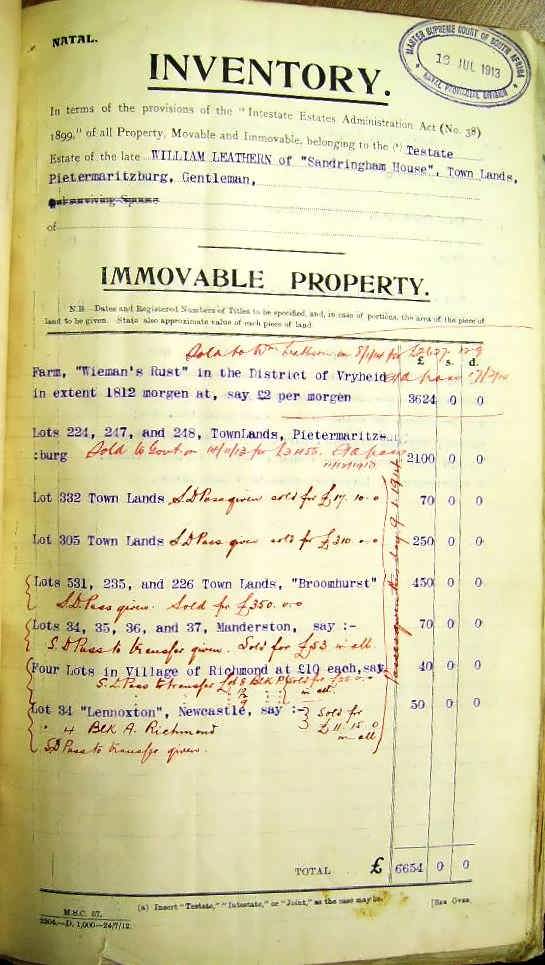 NATAL.
MASTER SUPREME COURT OF SOUTH AFRICA
JUL 1913
NATAL PROVINCIAL DIVISION
INVENTORY.
In terms of the provisions of the "Intestate Estates Administration Act (No. 38)
1899," of all Property, Movable and Immovable, belonging to the (a) Testate
Estate of the late WILLIAM LEATHERN of "Sandringham House", Town Lands,
Pietermaritzburg, Gentleman,
surviving Spouse
of
IMMOVABLE PROPERTY.
N.B.—Dates and Registered Numbers of Titles to be specified, and, in case of portions, the area of the piece of
land to be given. State also approximate value of each piece of land
£ s. d.
Sold to Wm Leathern on for £2627.
Farm, "Wieman's Rust" in the District of Vryheid
in extent 1812 morgen at, say £2 per morgen 3624 0 0
Lots 224, 247, and 248, TownLands, Pietermaritz-
:burg Sold to Govt. on for 2100 0 0
Lot 332 Town Lands S.D Pass given sold for £17. 10. 0 70 0 0
Lot 305 Town Lands S.D Pass given sold for £310. 0. 0 250 0 0
Lots 531, 235, and 226 Town Lands, "Broomhurst" 450 0 0
S.D. Pass given. Sold for £350. 0. 0
Lots 34, 35, 36, and 37, Manderston, say :- 70 0 0
S.D Pass to transfer given. Sold for £53 in all
Four Lots in Village of Richmond at £10 each, say 40 0 0
S.D Pass to transfer Lot Blk sold for in all.
Lot 34 "Lennoxton", Newcastle, say :- 50 0 0
Sold for
" 4 Blk A. Richmond £11. 15. 0
in all
S.D Pass to transfer given.
TOTAL £ 6654 0 0
(a) Insert "Testate," "Intestate," or "Joint," as the case may be. [See Over
M.S.C. 57.
D. 1,000—24/7/12.